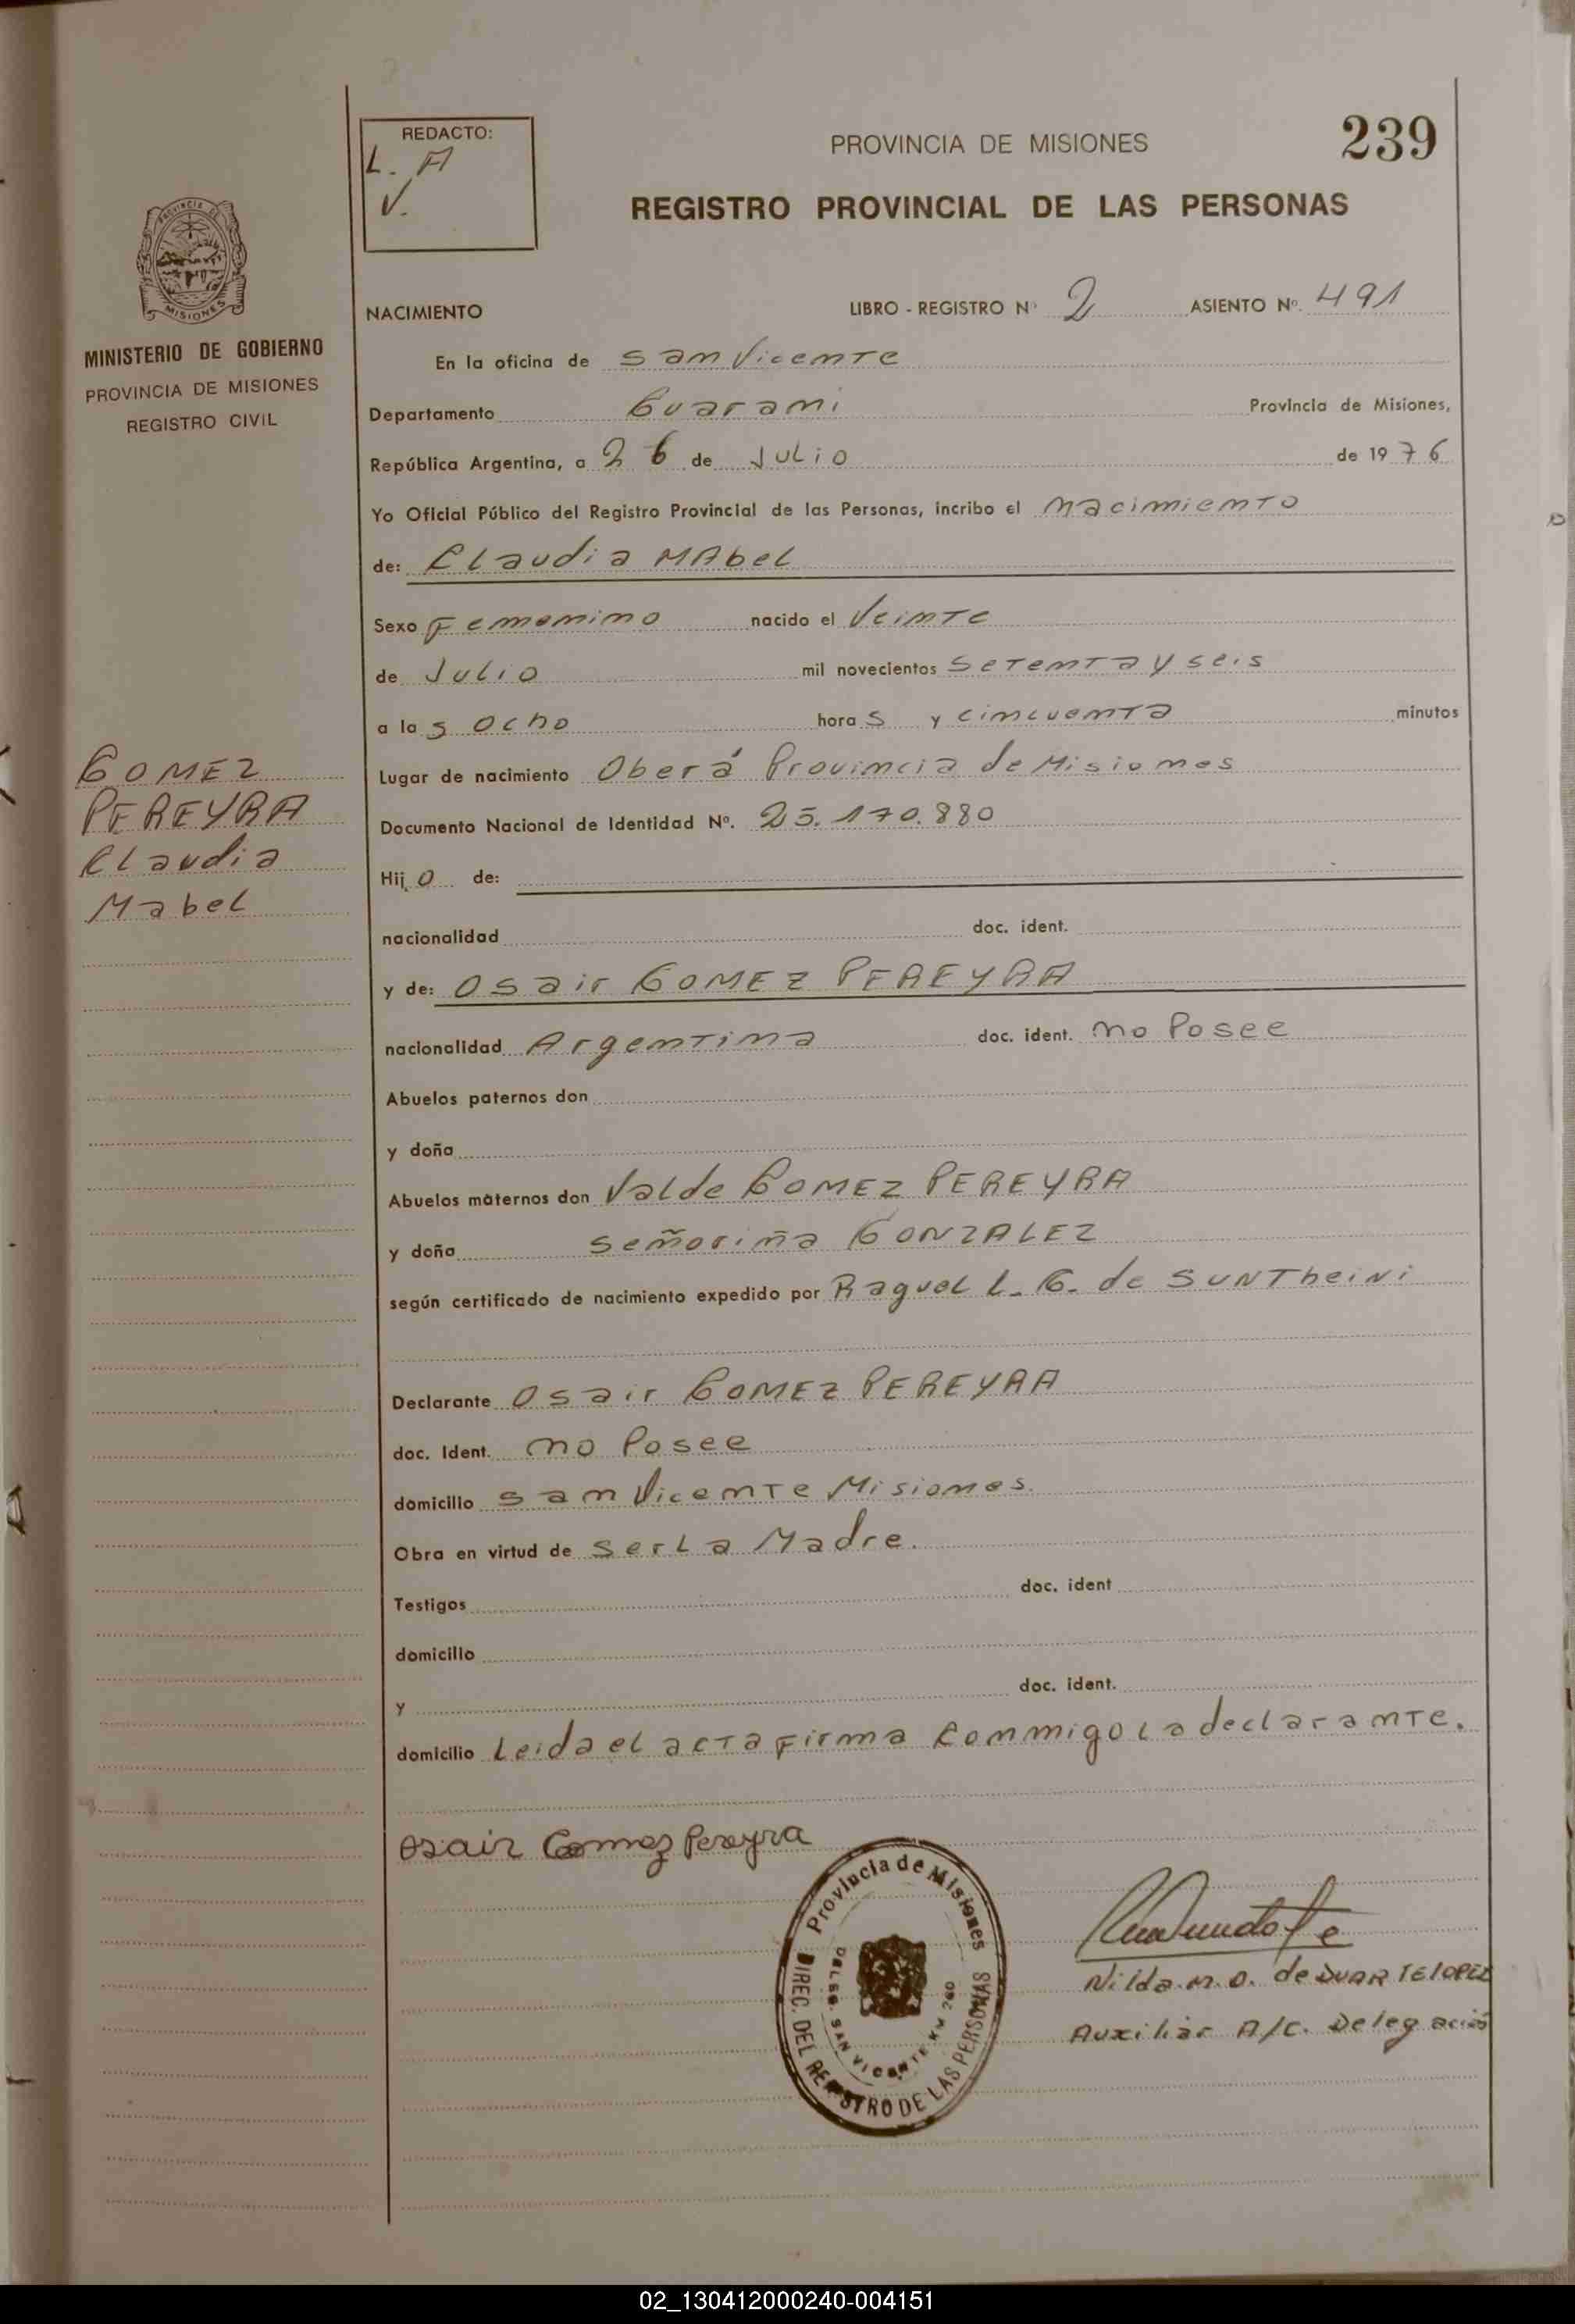 REDACTO:
L. A
V.
PROVINCIA DE MISIONES
239
REGISTRO PROVINCIAL DE LAS PERSONAS
PROVINCIA DE
MISIONES
MINISTERIO DE GOBIERNO
PROVINCIA DE MISIONES
REGISTRO CIVIL
NACIMIENTO LIBRO - REGISTRO Nº 2 ASIENTO Nº. 491
En la oficina de San Vicente
Departamento Guarani Provincia de Misiones,
República Argentina, a 26 de Julio de 1976
Yo Oficial Público del Registro Provincial de las Personas, incribo el nacimiento
de: Claudia MAbel
Sexo Femenino nacido el Veinte
de Julio mil novecientos setenta y seis
a las ocho horas y cincuenta minutos
GOMEZ
PEREYRA
Claudia
Mabel
Lugar de nacimiento Oberá Provincia de Misiones
Documento Nacional de Identidad Nº. 25.170.880
Hijo de:
nacionalidad doc. ident.
y de: Osair GOMEZ PEREYRA
nacionalidad Argentina doc. ident. no Posee
Abuelos paternos don
y doña
Abuelos maternos don Valde GOMEZ PEREYRA
y doña señoriña GONZALEZ
según certificado de nacimiento expedido por Raquel L. G. de SUNTheiNi
Declarante Osair GOMEZ PEREYRA
doc. Ident. no Posee
domicilio San Vicente Misiones.
Obra en virtud de ser La Madre.
Testigos doc. ident
domicilio
y doc. ident.
domicilio Leida el acta firma conmigo la declarante.
Osair Gomez Pereyra
Provincia de Misiones
DIREC. DEL REGISTRO DE LAS PERSONAS
DELEG. SAN VICENTE KM 260
Nilda M. O. de DUARTE LOPEZ
Auxiliar A/C. Delegación
02_130412000240-004151